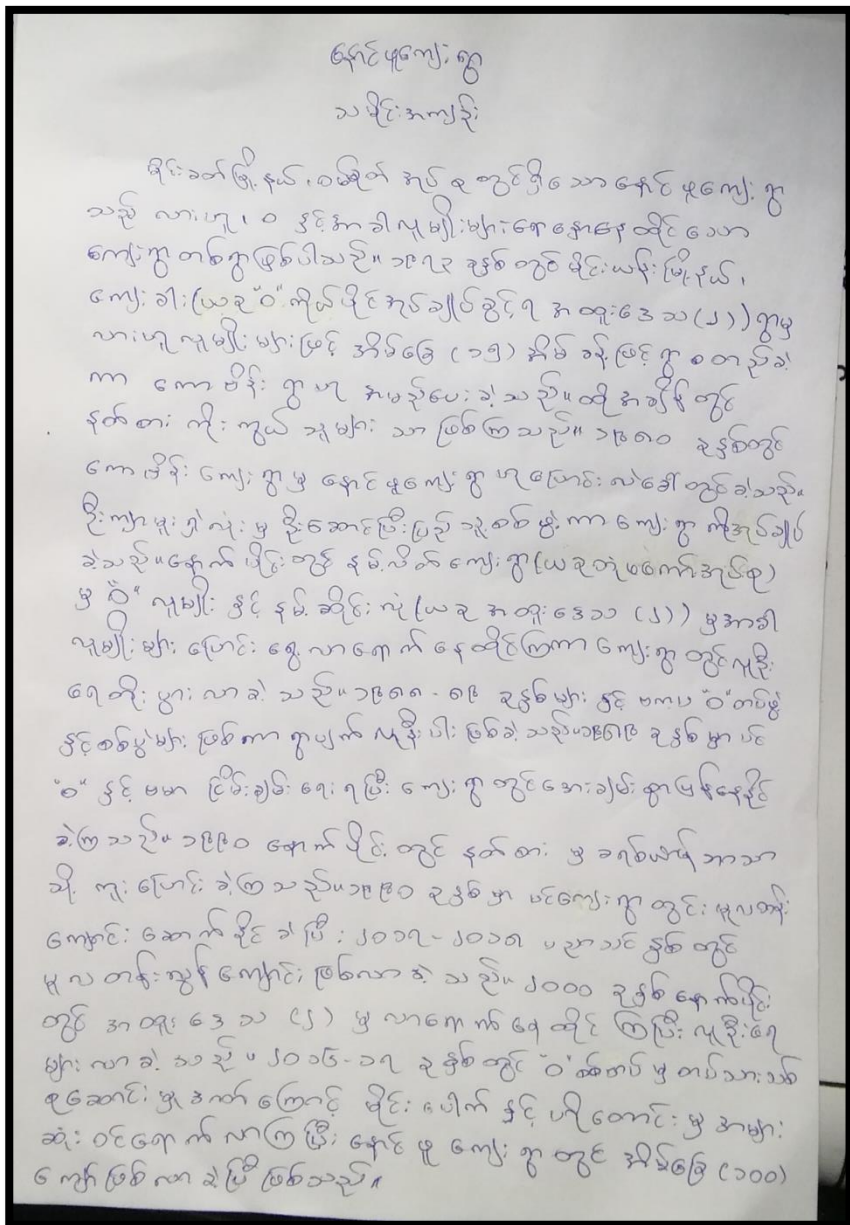 နောင်ပူကျေးရွာ
သမိုင်းအကျဉ်း
မိုင်းခတ်မြို့နယ်၊ ဝမ်စိုက် အုပ်စုတွင်ရှိသောနောင်ပူကျေးရွာ
သည် လားဟူ၊ ဝ နှင့်အာခါလူမျိုးများရောနှောနေထိုင်သော
ကျေးရွာတစ်ရွာဖြစ်ပါသည်။ ၁၉၇၃ ခုနှစ်တွင် မိုင်းယန်းမြို့နယ်၊
ကျေးခါး (ယခု"ဝ"ကိုယ်ပိုင်အုပ်ချုပ်ခွင့်ရ အထူးဒေသ(၂)) ရွာမှ
လားဟူလူမျိုးများဖြင့် အိမ်ခြေ (၁၅) အိမ်ခန့်ဖြင့်ရွာစတည်ခဲ့
ကာ ကောဗိန်း ရွာဟု အမည်ပေးခဲ့သည်။ ထိုအချိန်တွင်
နတ်စားကိုးကွယ်သူများ သာဖြစ်ကြသည်။ ၁၉၈၀ ခုနှစ်တွင်
ကောဗိန်းကျေးရွာမှ နောင်ပူကျေးရွာဟုပြောင်းလဲခေါ်တွင်ခဲ့သည်။
ဦးကျာမူးရှဲလုံးမှ ဦးဆောင်ပြီးပြည်သူ့စစ်ဖွဲ့ကာ ကျေးရွာကိုအုပ်ချုပ်
ခဲ့သည်။ နောက်ပိုင်းတွင် နမ့်လိတ်ကျေးရွာ(ယခုတုံဖကော်အုပ်စု)
မှ "ဝ" လူမျိုး နှင့် နမ့်ဆိုင်းလုံ (ယခု အထူးဒေသ (၂)) မှအာခါ
လူမျိုးများ ပြောင်းရွှေ့လာရောက်နေထိုင်ကြကာ ကျေးရွာတွင်လူဦး
ရေတိုးပွားလာခဲ့သည်။ ၁၉၈၈-၈၉ ခုနှစ်များ နှင့် ဗကပ "ဝ"တပ်ဖွဲ့
နှင့်စစ်ပွဲများ ဖြစ်ကာရွာပျက်လူနီးပါးဖြစ်ခဲ့သည်။ ၁၉၈၉ ခုနှစ်မှာပင်
"ဝ" နှင့် ဗမာ ငြိမ်းချမ်းရေးရပြီး ကျေးရွာတွင်အေးချမ်းစွာပြန်နေနိုင်
ခဲ့ကြသည်။ ၁၉၉၀ နောက်ပိုင်းတွင် နတ်စားမှ ခရစ်ယာန်ဘာသာ
သို့ ကူးပြောင်းခဲ့ကြသည်။ ၁၉၉၀ ခုနှစ်မှာပင်ကျေးရွာတွင်း မူလတန်း
ကျောင်းဆောက်နိုင်ခဲ့ပြီး ၂၀၁၇-၂၀၁၈ ပညာသင်နှစ်တွင်
မူလတန်းလွန်ကျောင်းဖြစ်လာခဲ့သည်။ ၂၀၀၀ ခုနှစ်နောက်ပိုင်း
တွင် အထူးဒေသ (၂) မှလာရောက်နေထိုင်ကြပြီးလူဦးရေ
များလာခဲ့သည်။ ၂၀၁၆-၁၇ ခုနှစ်တွင် "ဝ"စစ်တပ်မှ တပ်သားသစ်
စုဆောင်းမှုဒဏ်ကြောင့် မိုင်းပေါက်နှင့် ဟိုတောင်းမှ အများ
ဆုံးဝင်ရောက်လာကြပြီး နောင်ပူကျေးရွာတွင် အိမ်ခြေ(၁၀၀)
ကျော်ဖြစ်လာခဲ့ပြီဖြစ်သည်။